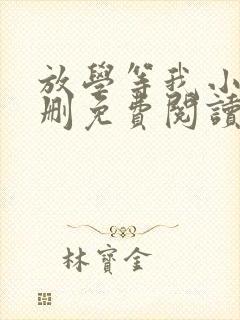 放學等我 小
刪免費閱讀
林寶金